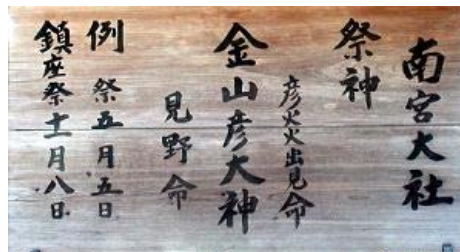 南宮大社
祭神
彦火火出見命
金山彦大神
見野命
例祭五月五日
鎮座祭十一月八日